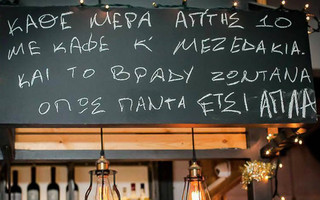 ΚΑΘΕ ΜΕΡΑ ΑΠ'ΤΙΣ 10
ΜΕ ΚΑΦΕ Κ' ΜΕΖΕΔΑΚΙΑ.
ΚΑΙ ΤΟ ΒΡΑΔΥ ΖΩΝΤΑΝΑ
ΟΠΩΣ ΠΑΝΤΑ ΕΤΣΙ ΑΠΛΑ